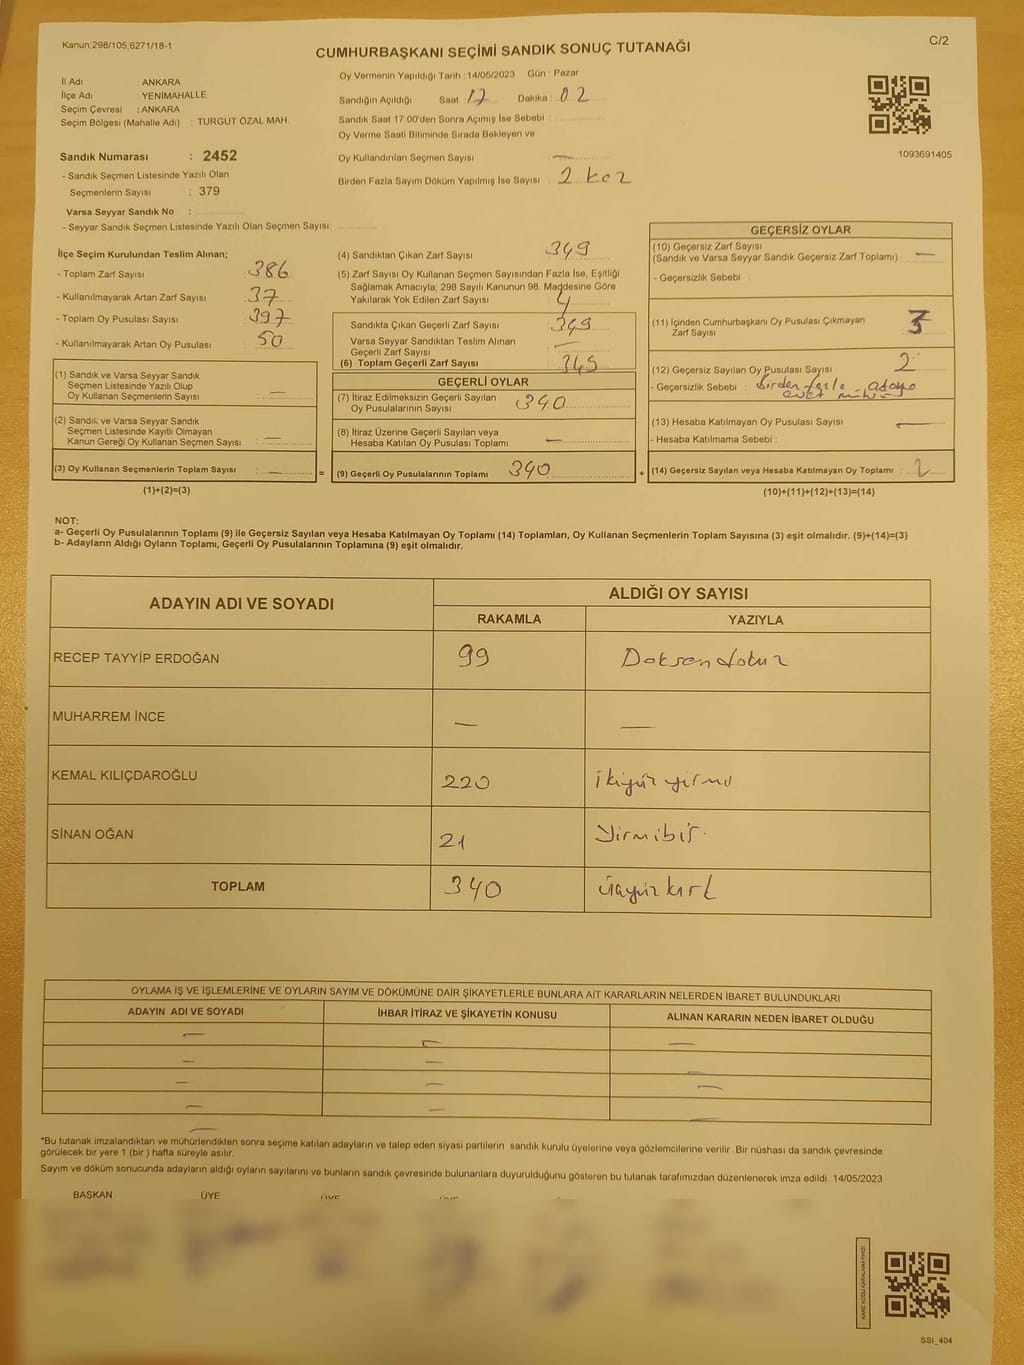 Kanun:298/105;6271/18-1
C/2
CUMHURBAŞKANI SEÇİMİ SANDIK SONUÇ TUTANAĞI
İl Adı : ANKARA
İlçe Adı : YENİMAHALLE
Seçim Çevresi : ANKARA
Seçim Bölgesi (Mahalle Adı) : TURGUT ÖZAL MAH.
Sandık Numarası : 2452
- Sandık Seçmen Listesinde Yazılı Olan
Seçmenlerin Sayısı : 379
Varsa Seyyar Sandık No :
- Seyyar Sandık Seçmen Listesinde Yazılı Olan Seçmen Sayısı:
Oy Vermenin Yapıldığı Tarih : 14/05/2023 Gün : Pazar
Sandığın Açıldığı Saat : 17 Dakika : 02
Sandık Saat 17:00'den Sonra Açımış İse Sebebi :
Oy Verme Saati Bitiminde Sırada Bekleyen ve
Oy Kullandırılan Seçmen Sayısı : —
Birden Fazla Sayım Döküm Yapılmış İse Sayısı : 2 kez
1093691405
İlçe Seçim Kurulundan Teslim Alınan;
- Toplam Zarf Sayısı : 386
- Kullanılmayarak Artan Zarf Sayısı : 37
- Toplam Oy Pusulası Sayısı : 397
- Kullanılmayarak Artan Oy Pusulası : 50
(1) Sandık ve Varsa Seyyar Sandık
Seçmen Listesinde Yazılı Olup
Oy Kullanan Seçmenlerin Sayısı : —
(2) Sandık ve Varsa Seyyar Sandık
Seçmen Listesinde Kayıtlı Olmayan
Kanun Gereği Oy Kullanan Seçmen Sayısı : —
(3) Oy Kullanan Seçmenlerin Toplam Sayısı : —
(1)+(2)=(3)
(4) Sandıktan Çıkan Zarf Sayısı : 349
(5) Zarf Sayısı Oy Kullanan Seçmen Sayısından Fazla İse, Eşitliği
Sağlamak Amacıyla; 298 Sayılı Kanunun 98. Maddesine Göre
Yakılarak Yok Edilen Zarf Sayısı : 4
Sandıkta Çıkan Geçerli Zarf Sayısı : 349
Varsa Seyyar Sandıktan Teslim Alınan
Geçerli Zarf Sayısı : —
(6) Toplam Geçerli Zarf Sayısı : 345
GEÇERLİ OYLAR
(7) İtiraz Edilmeksizin Geçerli Sayılan
Oy Pusulalarının Sayısı : 340
(8) İtiraz Üzerine Geçerli Sayılan veya
Hesaba Katılan Oy Pusulası Toplamı : —
= (9) Geçerli Oy Pusulalarının Toplamı 340 +
GEÇERSİZ OYLAR
(10) Geçersiz Zarf Sayısı
(Sandık ve Varsa Seyyar Sandık Geçersiz Zarf Toplamı) : —
- Geçersizlik Sebebi :
(11) İçinden Cumhurbaşkanı Oy Pusulası Çıkmayan
Zarf Sayısı : 3
(12) Geçersiz Sayılan Oy Pusulası Sayısı : 2
- Geçersizlik Sebebi : Birden fazla adaya
evet mührü
(13) Hesaba Katılmayan Oy Pusulası Sayısı : —
- Hesaba Katılmama Sebebi :
(14) Geçersiz Sayılan veya Hesaba Katılmayan Oy Toplamı : 2
(10)+(11)+(12)+(13)=(14)
NOT:
a- Geçerli Oy Pusulalarının Toplamı (9) ile Geçersiz Sayılan veya Hesaba Katılmayan Oy Toplamı (14) Toplamları, Oy Kullanan Seçmenlerin Toplam Sayısına (3) eşit olmalıdır. (9)+(14)=(3)
b- Adayların Aldığı Oyların Toplamı, Geçerli Oy Pusulalarının Toplamına (9) eşit olmalıdır.
ADAYIN ADI VE SOYADI
ALDIĞI OY SAYISI
RAKAMLA YAZIYLA
RECEP TAYYİP ERDOĞAN 99 Doksandokuz
MUHARREM İNCE — —
KEMAL KILIÇDAROĞLU 220 ikiyüz yirmi
SİNAN OĞAN 21 Yirmibir
TOPLAM 340 üçyüzkırk
OYLAMA İŞ VE İŞLEMLERİNE VE OYLARIN SAYIM VE DÖKÜMÜNE DAİR ŞİKAYETLERLE BUNLARA AİT KARARLARIN NELERDEN İBARET BULUNDUKLARI
ADAYIN ADI VE SOYADI İHBAR İTİRAZ VE ŞİKAYETİN KONUSU ALINAN KARARIN NEDEN İBARET OLDUĞU
— — —
— — —
— — —
— — —
*Bu tutanak imzalandıktan ve mühürlendikten sonra seçime katılan adayların ve talep eden siyasi partilerin sandık kurulu üyelerine veya gözlemcilerine verilir .Bir nüshası da sandık çevresinde
görülecek bir yere 1 (bir ) hafta süreyle asılır.
Sayım ve döküm sonucunda adayların aldığı oyların sayılarını ve bunların sandık çevresinde bulunanlara duyurulduğunu gösteren bu tutanak tarafımızdan düzenlenerek imza edildi. 14/05/2023
BAŞKAN ÜYE ÜYE ÜYE
SSI_404